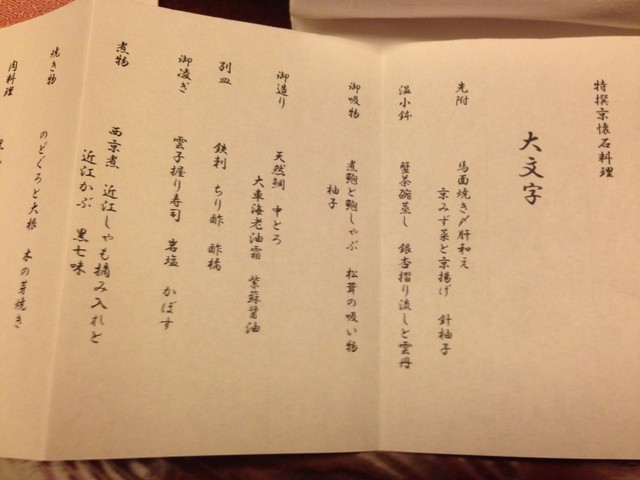 特撰京懐石料理
大文字
先附 馬面焼き〆肝和え
京みず菜と京揚げ 針柚子
温小鉢 蟹茶碗蒸し 銀杏摺り流しと雲丹
御吸物 煮鮑と鮑しゃぶ 松茸の吸い物
柚子
御造り 天然鯛 中とろ
大車海老油霜 紫蘇醤油
別皿 鉄刺 ちり酢 酢橘
御凌ぎ 雲子握り寿司 岩塩 かぼす
煮物 西京煮 近江しゃも摘み入れと
近江かぶ 黒七味
焼き物 のどぐろと大根 木の芽焼き
肉料理